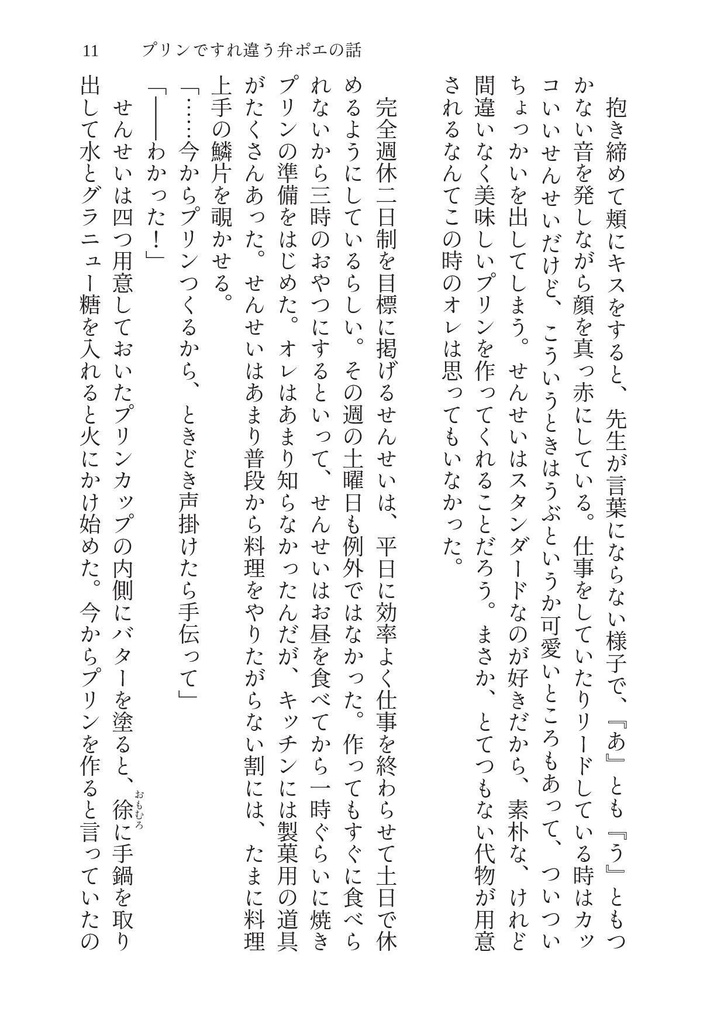 11 プリンですれ違う弁ポエの話
　抱き締めて頬にキスをすると、先生が言葉にならない様子で、『あ』とも『う』ともつ
かない音を発しながら顔を真っ赤にしている。仕事をしていたりリードしている時はカッ
コいいせんせいだけど、こういうときはうぶというか可愛いところもあって、ついつい
ちょっかいを出してしまう。せんせいはスタンダードなのが好きだから、素朴な、けれど
間違いなく美味しいプリンを作ってくれることだろう。まさか、とてつもない代物が用意
されるなんてこの時のオレは思ってもいなかった。
　完全週休二日制を目標に掲げるせんせいは、平日に効率よく仕事を終わらせて土日で休
めるようにしているらしい。その週の土曜日も例外ではなかった。作ってもすぐに食べら
れないから三時のおやつにするといって、せんせいはお昼を食べてから一時ぐらいに焼き
プリンの準備をはじめた。オレはあまり知らなかったんだが、キッチンには製菓用の道具
がたくさんあった。せんせいはあまり普段から料理をやりたがらない割には、たまに料理
上手の鱗片を覗かせる。
「……今からプリンつくるから、ときどき声掛けたら手伝って」
「――わかった！」
　せんせいは四つ用意しておいたプリンカップの内側にバターを塗ると、徐おもむろに手鍋を取り
出して水とグラニュー糖を入れると火にかけ始めた。今からプリンを作ると言っていたの